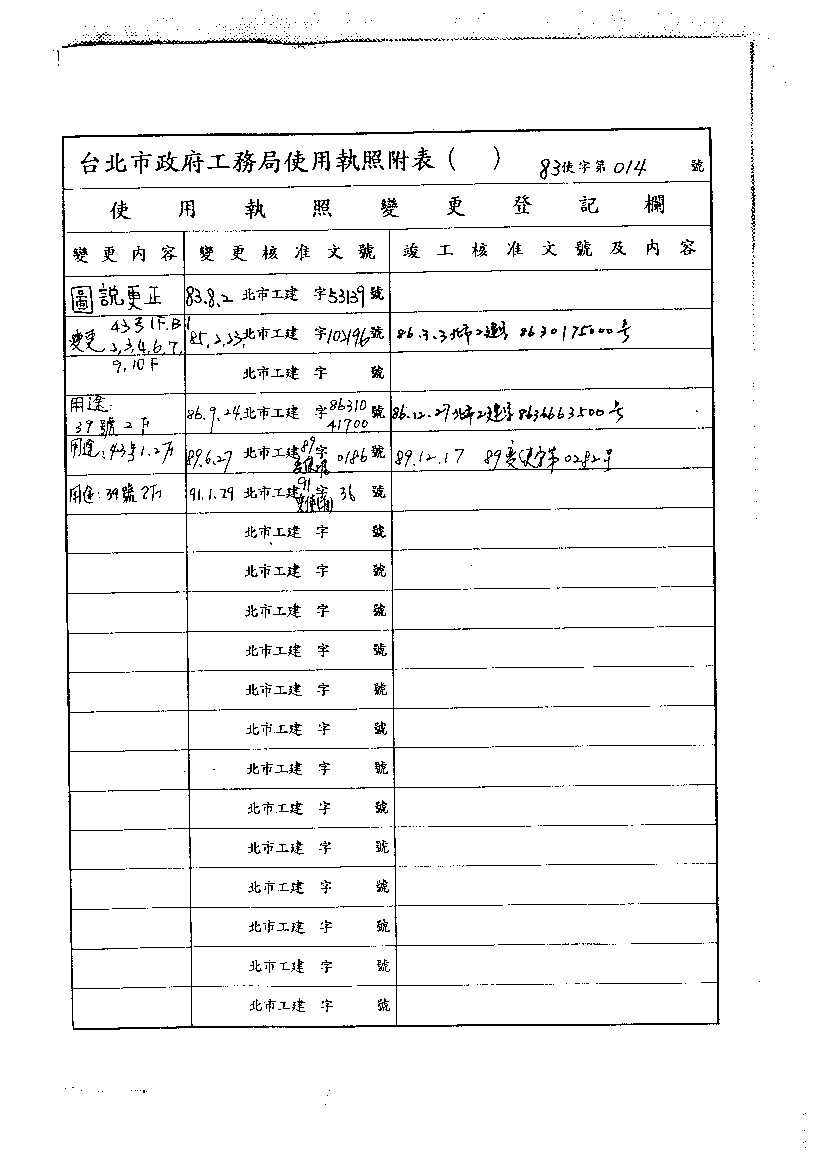 台北市政府工務局使用執照附表（　） 83使字第014 號
使用執照變更登記欄
變更內容 變更核准文號 竣工核准文號及內容
圖說更正 83.8.2 北市工建 字53139號
變更 43号1F.B1 2,3,4,6,7, 85.2.33. 北市工建 字103196號 86.3.3北市工建字8630175000号
9,10F 北市工建 字 號
用途:
39號2F 86.9.24. 北市工建 字8631041700號 86.12.27北市工建字8636663500号
用途:43号1.2F 89.6.27 北市工建 89字 0186號 89.12.17 89變使字第0282号
用途:39號2F 91.1.29 北市工建 91字 36 號
北市工建 字 號
北市工建 字 號
北市工建 字 號
北市工建 字 號
北市工建 字 號
北市工建 字 號
北市工建 字 號
北市工建 字 號
北市工建 字 號
北市工建 字 號
北市工建 字 號
北市工建 字 號
北市工建 字 號